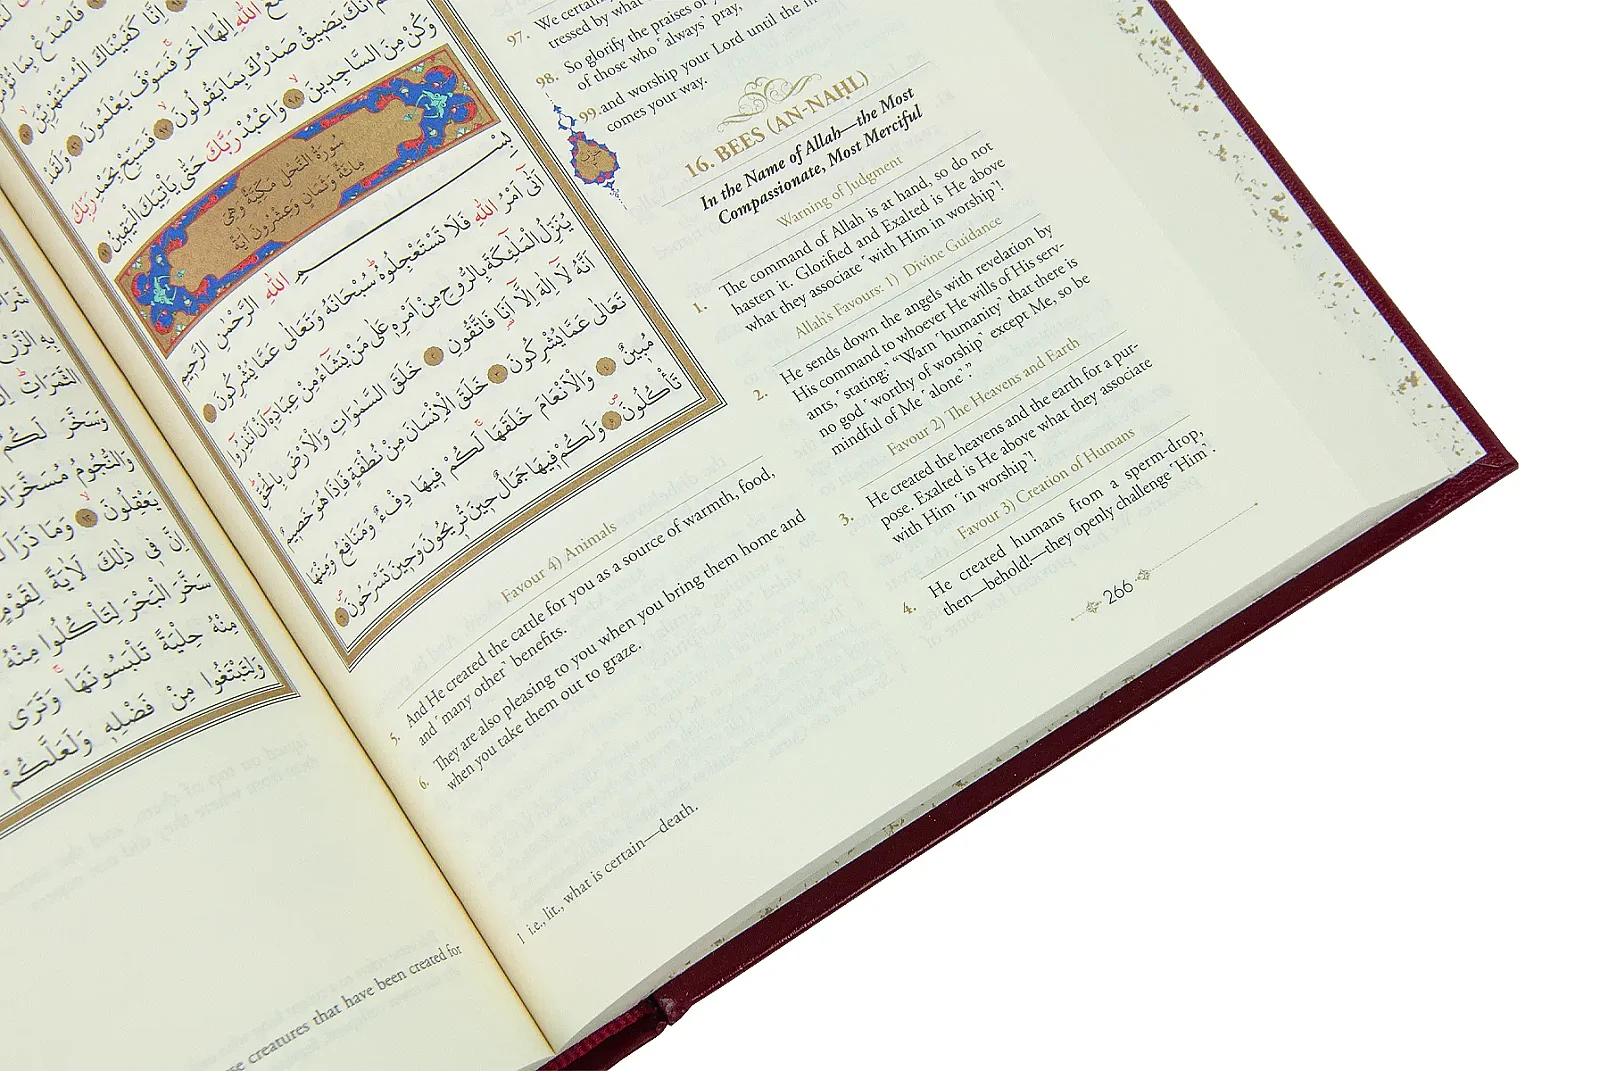 فَاصْدَعْ بِمَا تُؤْمَرُ
اِنَّا كَفَيْنَاكَ الْمُسْتَهْزِئٖينَ
اللّٰهِ اِلٰهًا اٰخَرَ فَسَوْفَ يَعْلَمُونَ ۝٩٦ وَلَقَدْ
اَنَّكَ يَضٖيقُ صَدْرُكَ بِمَا يَقُولُونَ ۝٩٧ فَسَبِّحْ بِحَمْدِ رَبِّكَ
وَكُنْ مِنَ السَّاجِدٖينَ ۝٩٨ وَاعْبُدْ رَبَّكَ حَتّٰى يَأْتِيَكَ الْيَقٖينُ ۝٩٩
سُورَةُ النَّحْلِ مَكِّيَّةٌ وَهِيَ
مِائَةٌ وَثَمَانٍ وَعِشْرُونَ اٰيَةً
بِسْــــمِ اللّٰهِ الرَّحْمٰنِ الرَّحٖيمِ
اَتٰٓى اَمْرُ اللّٰهِ فَلَا تَسْتَعْجِلُوهُ سُبْحَانَهُ وَتَعَالٰى عَمَّا يُشْرِكُونَ ۝١
يُنَزِّلُ الْمَلٰٓئِكَةَ بِالرُّوحِ مِنْ اَمْرِهٖ عَلٰى مَنْ يَشَٓاءُ مِنْ عِبَادِهٖٓ اَنْ اَنْذِرُٓوا
اَنَّهُ لَٓا اِلٰهَ اِلَّٓا اَنَا فَاتَّقُونِ ۝٢ خَلَقَ السَّمٰوَاتِ وَالْاَرْضَ بِالْحَقِّ
تَعَالٰى عَمَّا يُشْرِكُونَ ۝٣ خَلَقَ الْاِنْسَانَ مِنْ نُطْفَةٍ فَاِذَا هُوَ خَصٖيمٌ
مُبٖينٌ ۝٤ وَالْاَنْعَامَ خَلَقَهَا لَكُمْ فٖيهَا دِفْءٌ وَمَنَافِعُ وَمِنْهَا
تَأْكُلُونَ ۝٥ وَلَكُمْ فٖيهَا جَمَالٌ حٖينَ تُرٖيحُونَ وَحٖينَ تَسْرَحُونَ ۝٦
97. We certainly
tressed by what
98. So glorify the praises of
of those who ˹always˺ pray,
99. and worship your Lord until the in
comes your way.
حزب
16. BEES (AN-NAḤL)
In the Name of Allah—the Most
Compassionate, Most Merciful
Warning of Judgment
1. The command of Allah is at hand, so do not
hasten it. Glorified and Exalted is He above
what they associate ˹with Him in worship˺!
Allah's Favours: 1) Divine Guidance
2. He sends down the angels with revelation by
His command to whoever He wills of His serv-
ants, ˹stating:˺ “Warn ˹humanity˺ that there is
no god ˹worthy of worship˺ except Me, so be
mindful of Me ˹alone˺.”
Favour 2) The Heavens and Earth
3. He created the heavens and the earth for a pur-
pose. Exalted is He above what they associate
with Him ˹in worship˺!
Favour 3) Creation of Humans
4. He created humans from a sperm-drop,
then—behold!—they openly challenge ˹Him˺.
Favour 4) Animals
5. And He created the cattle for you as a source of warmth, food,
and ˹many other˺ benefits.
6. They are also pleasing to you when you bring them home and
when you take them out to graze.
1 i.e., lit., what is certain—death.
266
بِهِ الزَّرْعَ
الثَّمَرَاتِ
وَسَخَّرَ لَكُمُ
وَالنُّجُومُ مُسَخَّرَاتٌ
يَعْقِلُونَ ۝١٢ وَمَا ذَرَاَ
اِنَّ فٖي ذٰلِكَ لَاٰيَةً لِقَوْمٍ
سَخَّرَ الْبَحْرَ لِتَأْكُلُوا مِنْهُ
مِنْهُ حِلْيَةً تَلْبَسُونَهَا وَتَرَى
وَلِتَبْتَغُوا مِنْ فَضْلِهٖ وَلَعَلَّكُمْ
creatures that have been created for